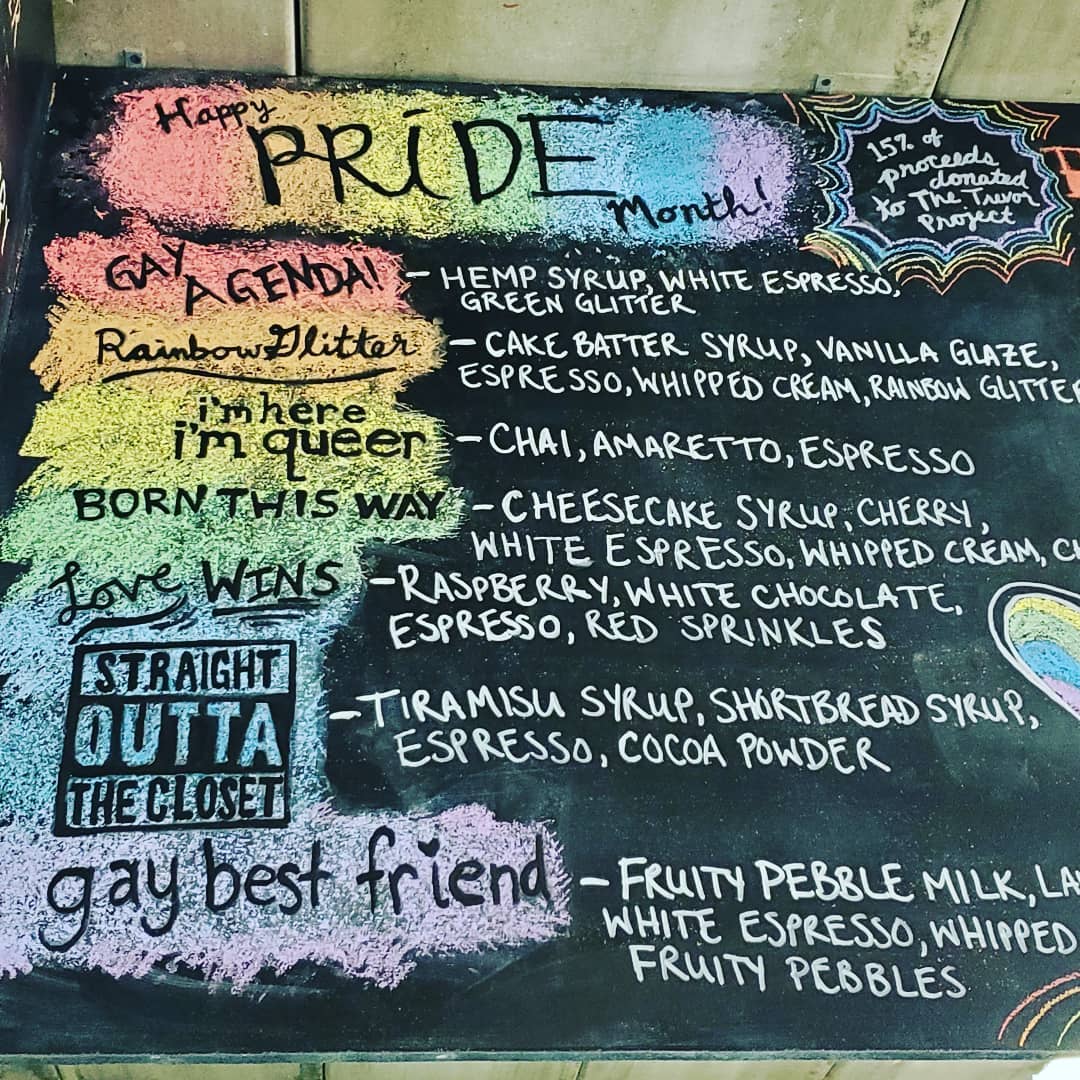 Happy
PRiDE
Month!
15% of
proceeds
donated
to The Trevor
Project
GAY
AGENDA! - HEMP SYRUP, WHITE ESPRESSO,
GREEN GLITTER
Rainbow Glitter - CAKE BATTER SYRUP, VANILLA GLAZE,
ESPRESSO, WHIPPED CREAM, RAINBOW GLITTER
i'm here
i'm queer - CHAI, AMARETTO, ESPRESSO
BORN THIS WAY - CHEESECAKE SYRUP, CHERRY,
WHITE ESPRESSO, WHIPPED CREAM,
Love WINS - RASPBERRY, WHITE CHOCOLATE,
ESPRESSO, RED SPRINKLES
STRAIGHT
OUTTA
THE CLOSET
- TIRAMISU SYRUP, SHORTBREAD SYRUP,
ESPRESSO, COCOA POWDER
gay best friend - FRUITY PEBBLE MILK,
WHITE ESPRESSO, WHIPPED
FRUITY PEBBLES